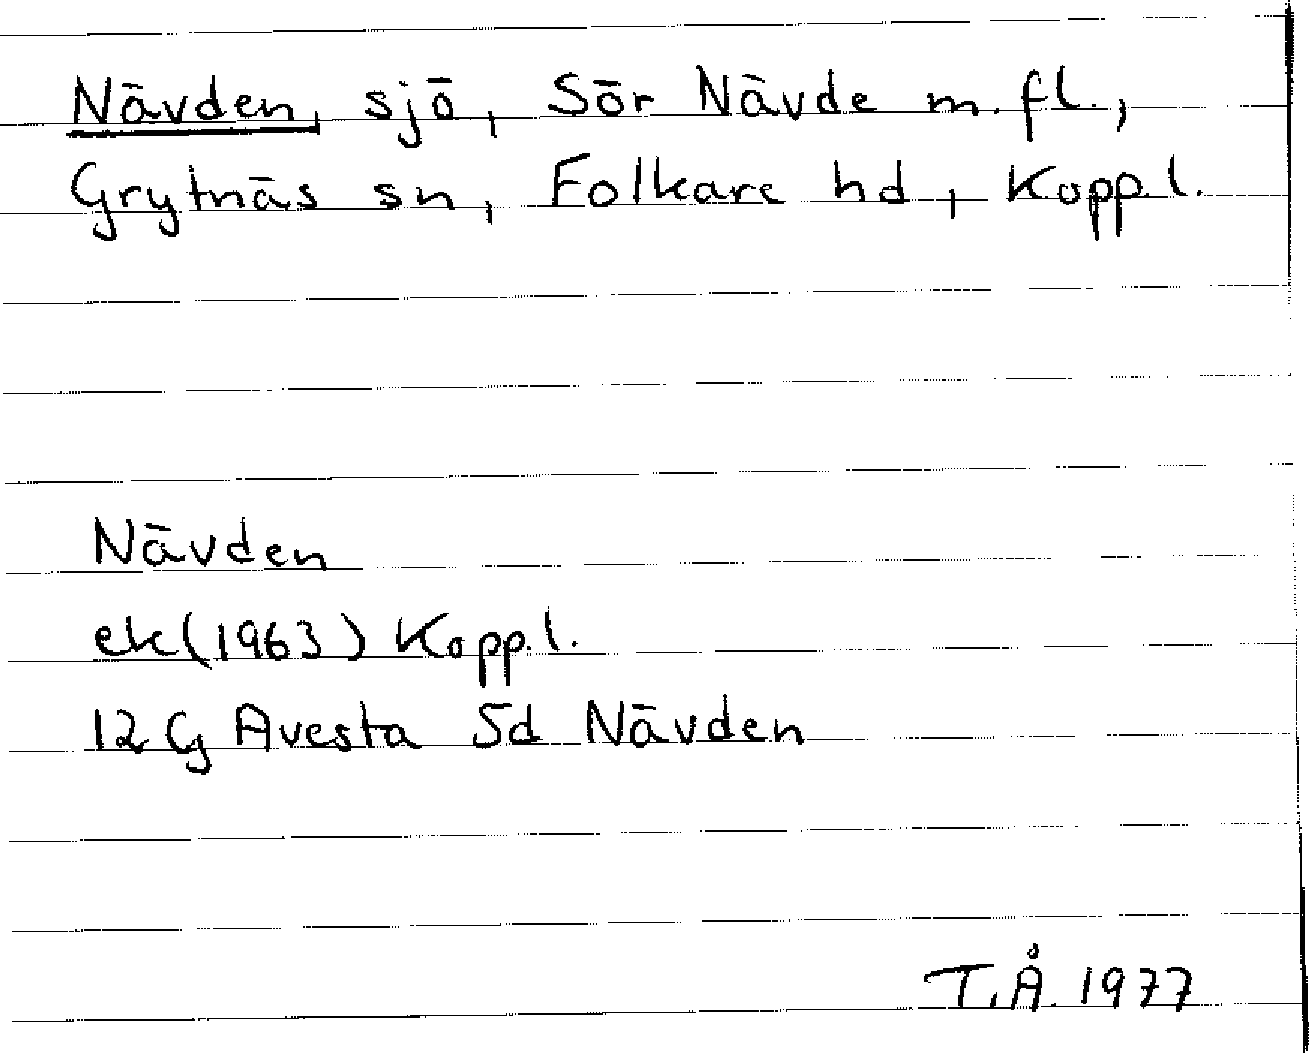 Nävden, sjö, Sör Nävde m.fl.,
Grytnäs sn, Folkare hd, Kopp.l.
Nävden
ek(1963) Kopp.l.
12G Avesta 5d Nävden
T.Å. 1977